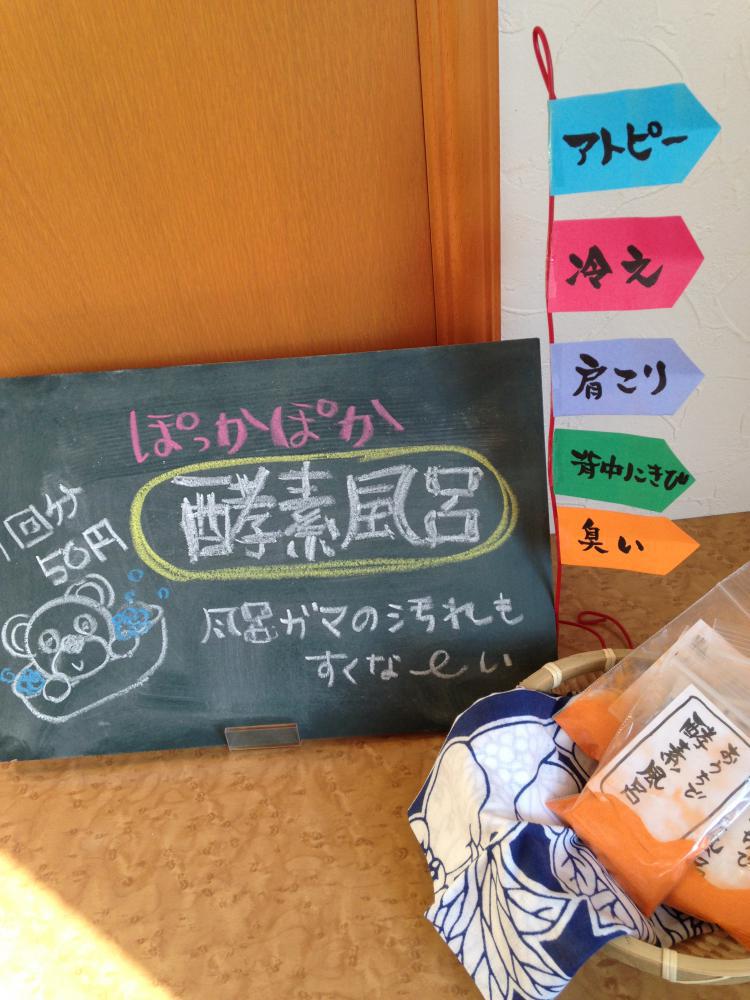 ぽっかぽか
酵素風呂
一回分
50円
風呂ガマの汚れも
すくなーい
アトピー
冷え
肩こり
背中にきび
臭い
おうちで
酵素風呂